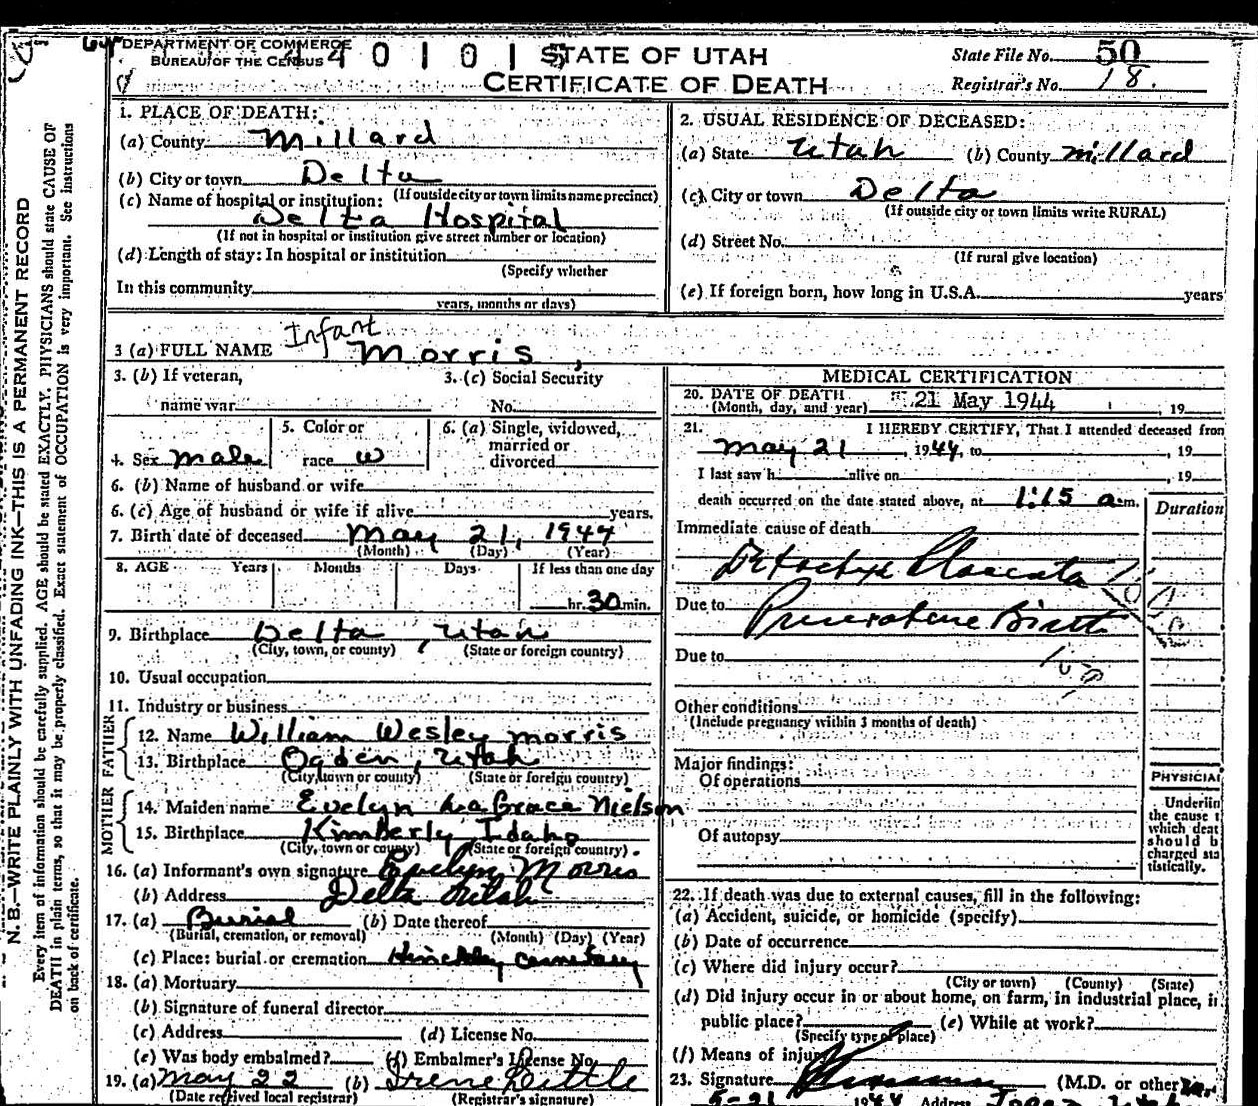 DEPARTMENT OF COMMERCE
BUREAU OF THE CENSUS
4 0 1 0 1
STATE OF UTAH
CERTIFICATE OF DEATH
State File No. 50
Registrar's No. 18.
N. B.—WRITE PLAINLY WITH UNFADING INK—THIS IS A PERMANENT RECORD
Every item of information should be carefully supplied. AGE should be stated EXACTLY. PHYSICIANS should state CAUSE OF
DEATH in plain terms, so that it may be properly classified. Exact statement of OCCUPATION is very important. See instructions
on back of certificate.
1. PLACE OF DEATH:
(a) County Millard
(b) City or town Delta
(If outside city or town limits name precinct)
(c) Name of hospital or institution:
Delta Hospital
(If not in hospital or institution give street number or location)
(d) Length of stay: In hospital or institution
(Specify whether
In this community
years, months or days)
2. USUAL RESIDENCE OF DECEASED:
(a) State Utah (b) County Millard
(c) City or town Delta
(If outside city or town limits write RURAL)
(d) Street No.
(If rural give location)
(e) If foreign born, how long in U.S.A. years
3 (a) FULL NAME Infant Morris,
3. (b) If veteran,
name war
3. (c) Social Security
No.
4. Sex male
5. Color or
race w
6. (a) Single, widowed,
married or
divorced
6. (b) Name of husband or wife
6. (c) Age of husband or wife if alive years.
7. Birth date of deceased May 21, 1944
(Month) (Day) (Year)
8. AGE Years Months Days If less than one day
hr. 30 min.
9. Birthplace Delta, Utah
(City, town, or county) (State or foreign country)
10. Usual occupation
11. Industry or business
FATHER
12. Name William Wesley Morris
13. Birthplace Ogden, Utah
(City, town or county) (State or foreign country)
MOTHER
14. Maiden name Evelyn LaGrace Nielson
15. Birthplace Kimberly, Idaho
(City, town or county) (State or foreign country).
16. (a) Informant's own signature Evelyn Morris
(b) Address Delta Utah
17. (a) Burial (b) Date thereof
(Burial, cremation, or removal) (Month) (Day) (Year)
(c) Place: burial or cremation Hinckley Cemetery
18. (a) Mortuary
(b) Signature of funeral director
(c) Address (d) License No.
(e) Was body embalmed? (f) Embalmer's License No.
19. (a) May 22 (b) Irene Little
(Date received local registrar) (Registrar's signature)
MEDICAL CERTIFICATION
20. DATE OF DEATH
(Month, day, and year) 21 May 1944, 19
21. I HEREBY CERTIFY, That I attended deceased from
May 21, 1944, to , 19
I last saw h alive on , 19
death occurred on the date stated above, at 1:15 a.m.
Duration
Immediate cause of death
Placenta
Due to Premature Birth
Due to
Other conditions
(Include pregnancy within 3 months of death)
Major findings:
Of operations
Of autopsy
PHYSICIAN
Underlin
the cause t
which deat
should b
charged sta
tistically.
22. If death was due to external causes, fill in the following:
(a) Accident, suicide, or homicide (specify)
(b) Date of occurrence
(c) Where did injury occur?
(City or town) (County) (State)
(d) Did injury occur in or about home, on farm, in industrial place, in
public place? (e) While at work?
(Specify type of place)
(f) Means of injury
23. Signature (M.D. or other)
5-21 1944 Address Utah